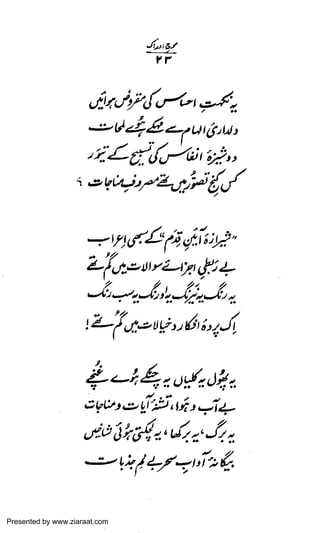 موجِ ادراک
۲۳
یہ نکہتِ احساس کی مقروض ہوائیں
دلداریٔ الہام سے مہکے ہوئے لمحات
دوشیزۂ انفاس کی تسبیح کے تیور
کس کنجِ تصوّر میں تھے مصروفِ مناجات ؟
"شیرازۂ آئینِ قِدم" کے سبھی اعراب
بے ربطیٔ اجزائے سوالات میں گم تھے
یہ رنگ یہ نیرنگ یہ اورنگ یہ سب رنگ
اک پردۂ افکار و خیالات میں گم تھے !
یہ پھول یہ کلیاں یہ چٹکے ہوئے غنچے
بے آب و ہوا، تشنۂ آیات و مناجات
یہ برگ، یہ برکھا، یہ لچکتی ہوئی شاخیں
بیگانۂ آدابِ سحر بے نمِ جذبات
Presented by www.ziaraat.com